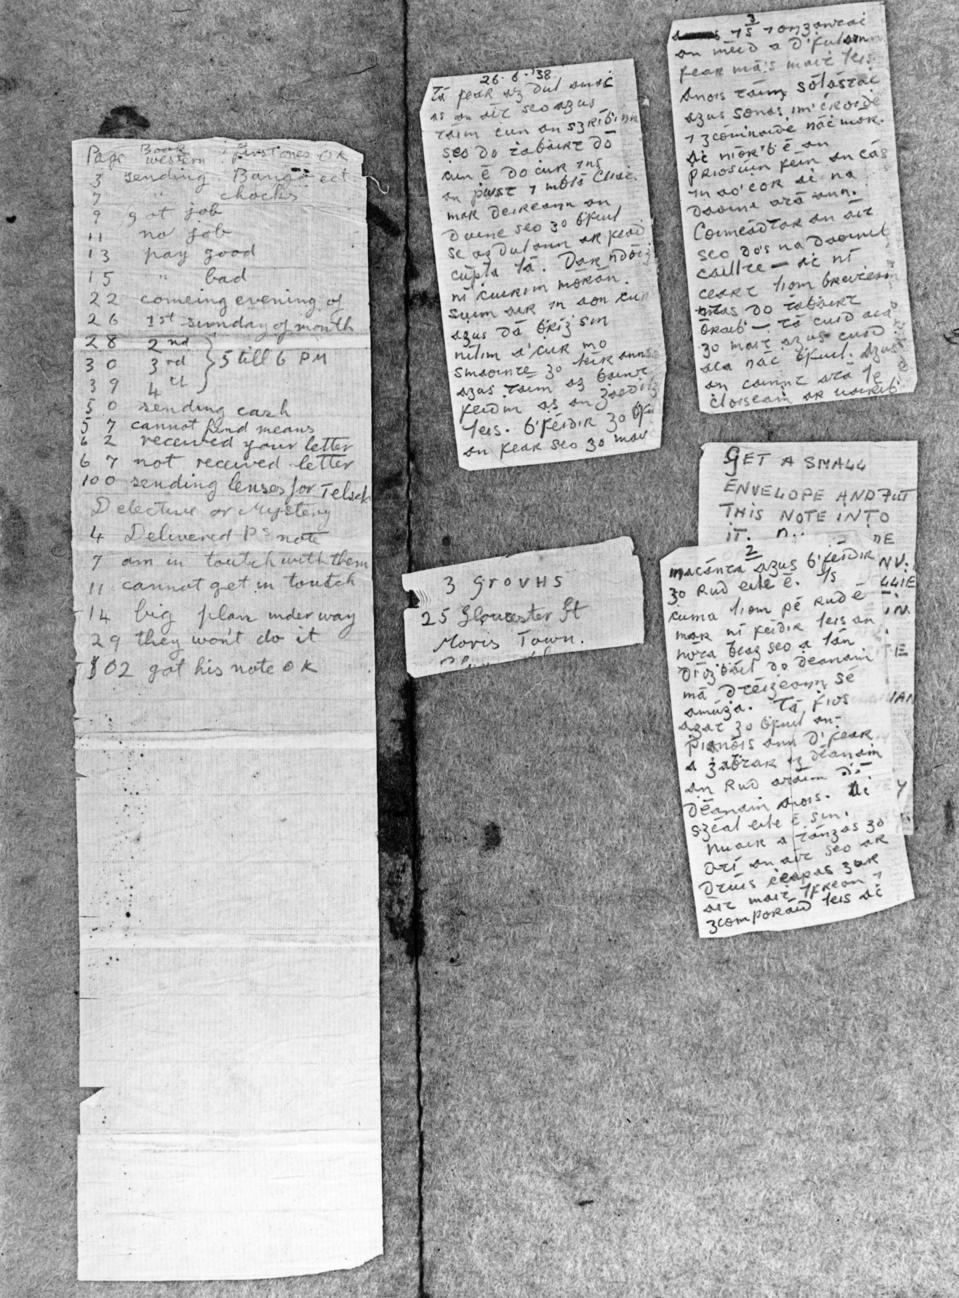 Page Book western : first ones OK
3 sending Bangsheet
7 " chocks
9 got job
11 no job
13 pay good
15 " bad
22 comeing evening of
26 1st sunday of month
28 2nd
30 3rd } 5 till 6 PM
39 4th
50 sending cash
57 cannot find means
62 received your letter
67 not received letter
100 sending lenses for Telsop
Detective or Mystery
4 Delivered Ps note
7 am in toutch with them
11 cannot get in toutch
14 big plan under way
29 they won't do it
102 got his note OK
26.6.'38
Tá fear ag dul amać
as an áit seo agus
táim ćun an sgríbinn
seo do ṫaḃairt dó
ċun é do ċur ins
an post
mar deireann an
Duine seo go ḃfuil
sé ag dul ann ar fead
cúpla lá. Dar ndóiġ
ní ċuirim mórán
suim air in aon ċur
agus dá ḃríġ sin
nílim a' cur mo
smaointe go léir anns
agus táim ag baint
feidm as an gaedilg
leis. B'féidir go ḃfuil
an fear seo go mait
3 GROVHS
25 Gloucester St
Moris Town.
3
an méid a d'fulann
fear má's mait leis
Anois táim sólástaċ
agus sonas im' ċroide
7 gcomnaide náć mór.
Aċ níor'b é an
príosuin féin an cás
in ao'ċor aċ na
daoine atá ann.
Coméadtar an áit
seo dos na daoinib
caillte — aċ ní
ceart liom breiteam
nas do ṫabairt
orab — tá cuid aca
go mait agus cuid
aca náć ḃfuil. Agus
an caint atá le
cloisean
GET A SMALL
ENVELOPE AND PUT
THIS NOTE INTO
IT.
2
macánta agus b'féidir
go rud eile é. Is
cuma liom pé rud é
mar ní féidir leis an
nóta beag seo a lán
díoġbáil do déanam
má dtéigeann sé
amúga. Tá fios
agat go ḃfuil an-
pianóis ann d'fear
a gabtar ag déanam
an rud atáim
déanam anois. Aċ
sgéal eile é sin.
Nuair a tángas go
dtí an áit seo ar
dtúis ċeapas gur
áit mait Ifreann 7
gcomparáid leis aċ